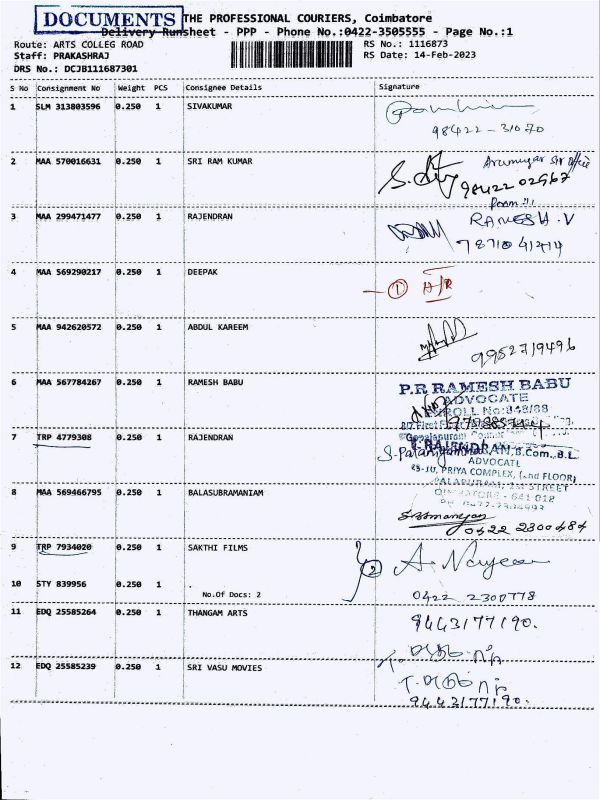 DOCUMENTS THE PROFESSIONAL COURIERS, Coimbatore
Delivery Runsheet - PPP - Phone No.:0422-3505555 - Page No.:1
Route: ARTS COLLEG ROAD RS No.: 1116873
Staff: PRAKASHRAJ RS Date: 14-Feb-2023
DRS No.: DCJB111687301
S No Consignment No Weight PCS Consignee Details Signature
1 SLM 313803596 0.250 1 SIVAKUMAR
98422-31070
2 MAA 570016631 0.250 1 SRI RAM KUMAR
98422 02967
3 MAA 299471477 0.250 1 RAJENDRAN RAMESH.V
4 MAA 569290217 0.250 1 DEEPAK 1
5 MAA 942620572 0.250 1 ABDUL KAREEM
9952719496
6 MAA 567784267 0.250 1 RAMESH BABU P.R RAMESH BABU
ADVOCATE
ROLL No:848/88
7 TRP 4779308 0.250 1 RAJENDRAN T.RAJENDRAN, B.Com., B.L
ADVOCATE
PRIYA COMPLEX, FLOOR)
STREET
8 MAA 569466795 0.250 1 BALASUBRAMANIAM - 641 018
0422 2300484
9 TRP 7934020 0.250 1 SAKTHI FILMS 2
10 STY 839956 0.250 1 .
No.Of Docs: 2 0422 2300778
11 EDQ 25585264 0.250 1 THANGAM ARTS 9443177190.
12 EDQ 25585239 0.250 1 SRI VASU MOVIES
9443177190.